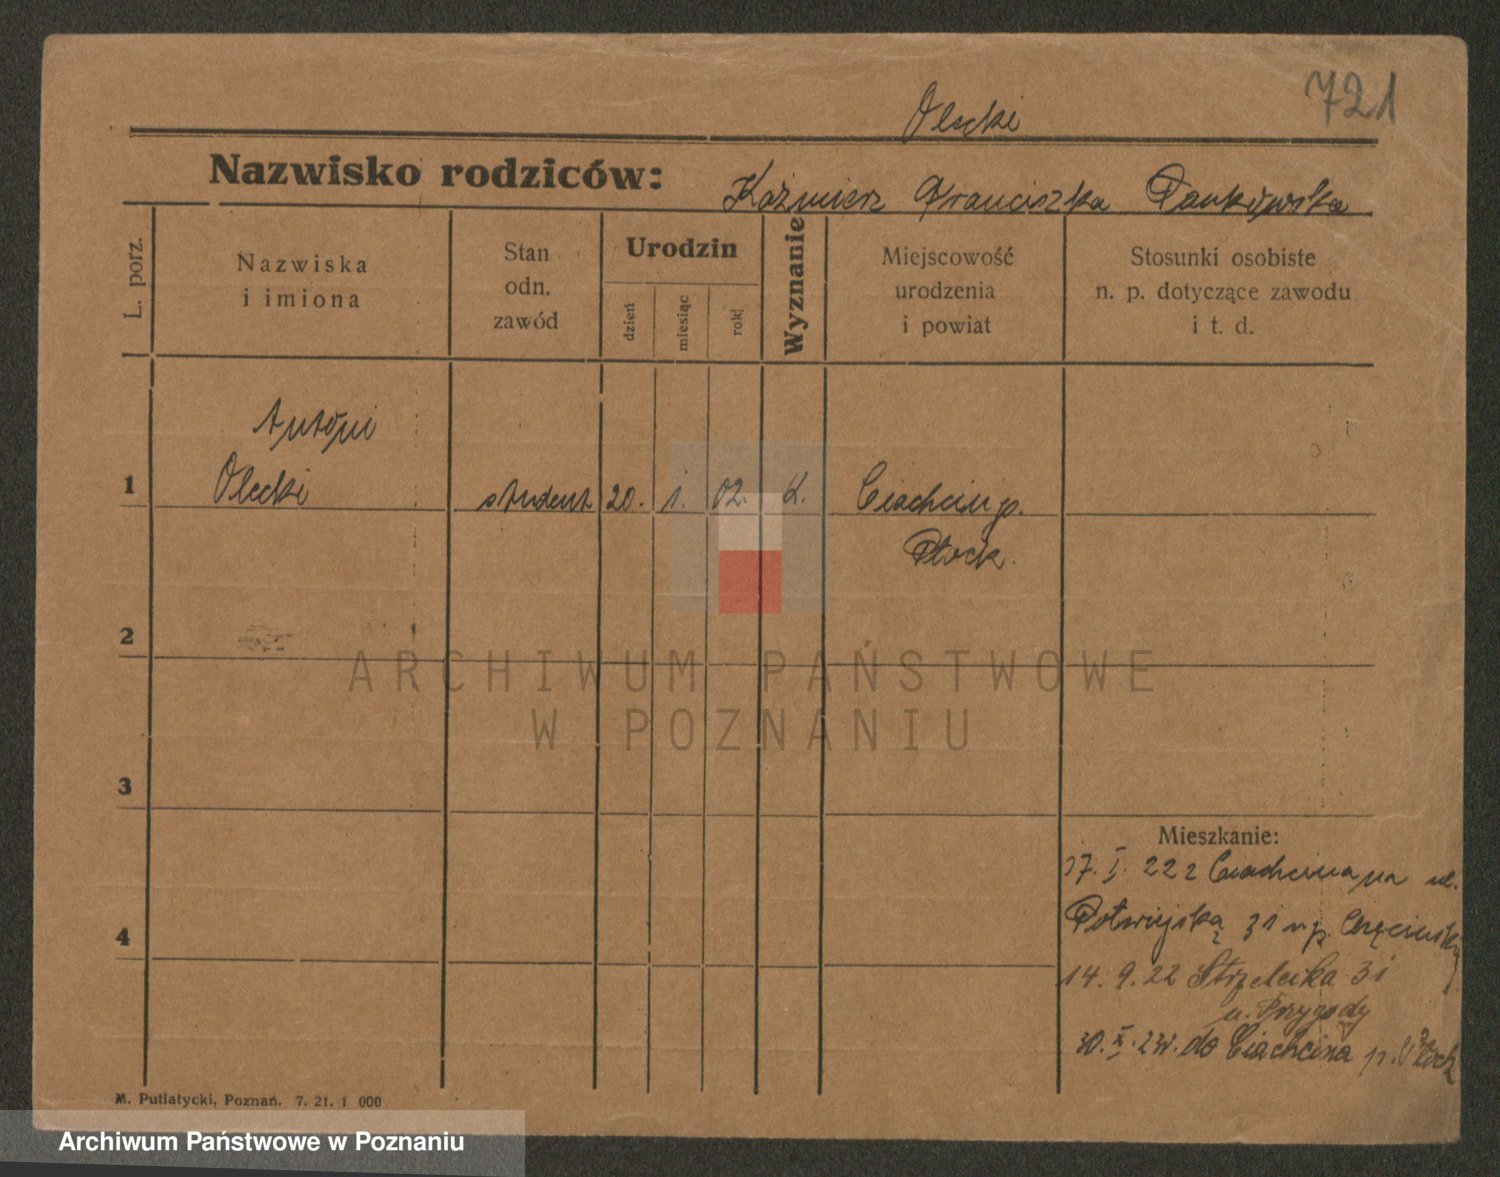 721
Olecki
Nazwisko rodziców: Kaźmierz Franciszka Pankowska
L. porz.
Nazwiska
i imiona
Stan
odn.
zawód
Urodzin
dzień
miesiąc
rok
Wyznanie
Miejscowość
urodzenia
i powiat
Stosunki osobiste
n. p. dotyczące zawodu
i t. d.
Antoni
1 Olecki student 20. 1. 02. k. Ciachcin p.
Płock.
2
3
4
ARCHIWUM PAŃSTWOWE
W POZNANIU
Mieszkanie:
17. I. 22 z Ciachcina na ul.
Półwiejską 31 u p.
14. 9. 22 Strzelecka 31
u. Przygody
30. X. 23 r. do Ciachcina p. Płock
M. Putiatycki, Poznań. 7. 21. 1 000
Archiwum Państwowe w Poznaniu